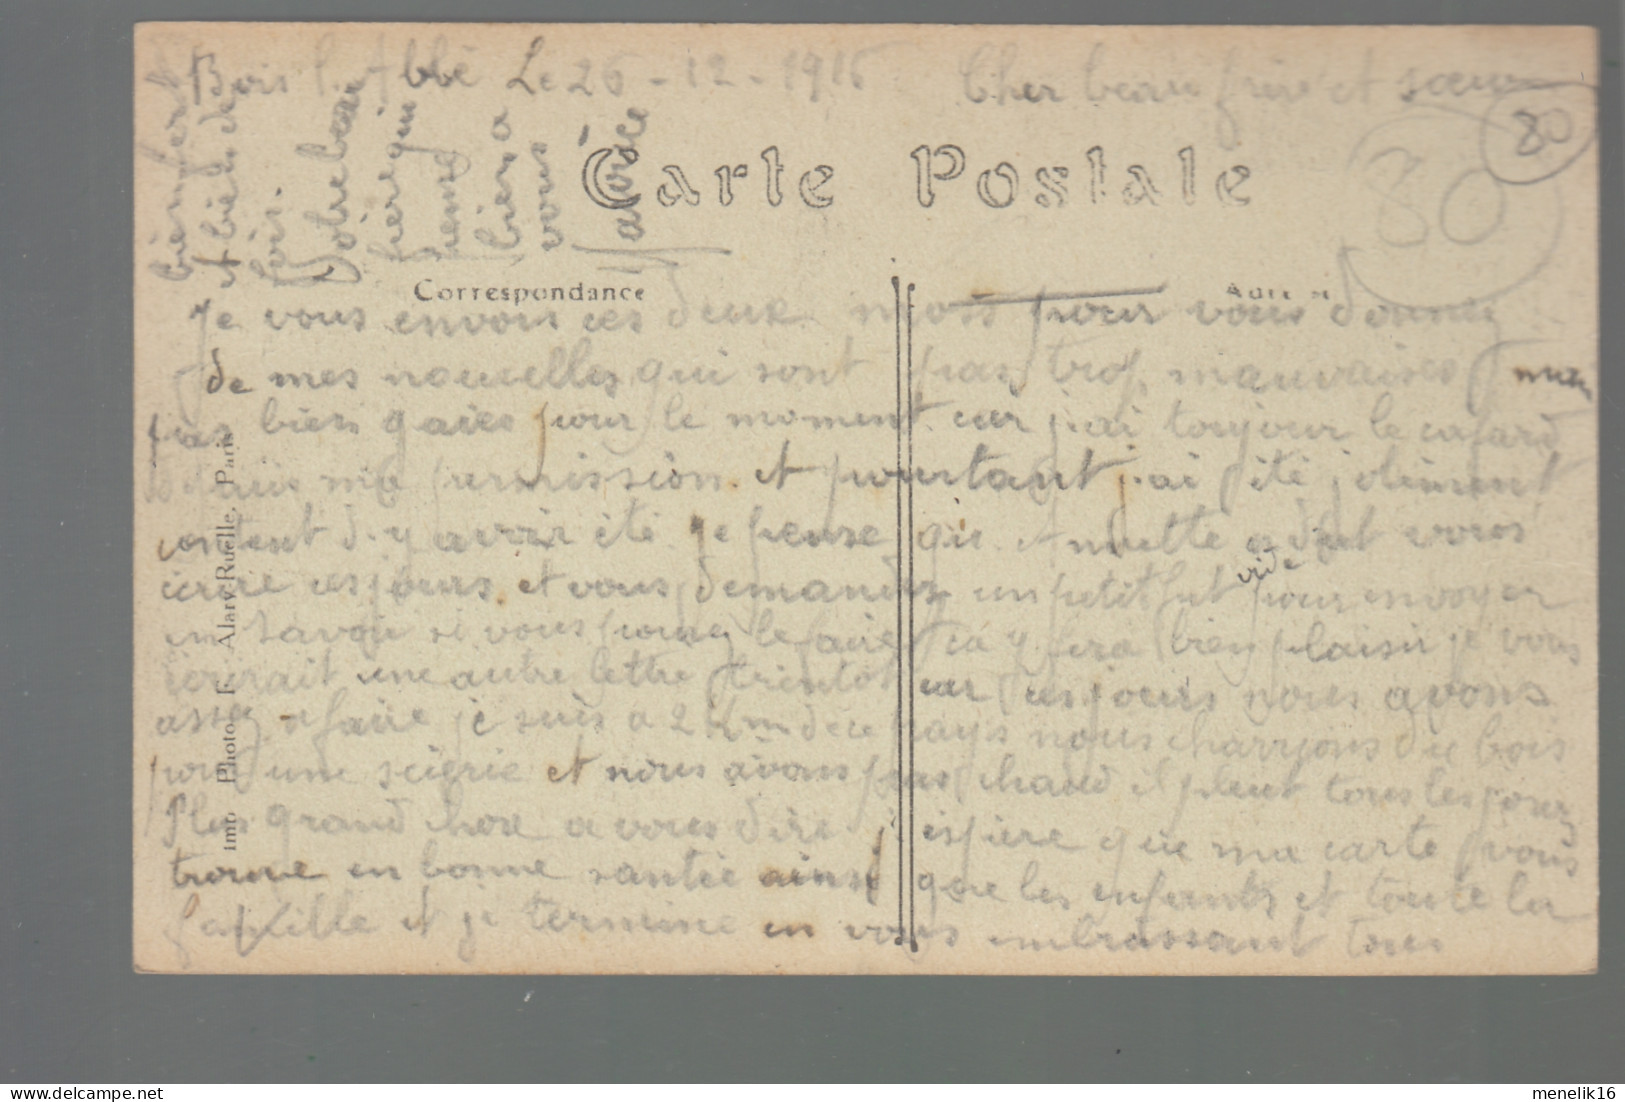 Bois l'Abbé Le 26-12-1916 Cher beau frère et sœur
80
80
Carte Postale
Correspondance
Je vous envois ces deux mots pour vous donner
de mes nouvelles qui sont pas trop mauvaises
pas bien gaies pour le moment car j'ai toujour le cafard
depuis ma permission et pourtant j'ai été joliment
content d'y avoir été je pense que a dut vous
écrire ces jours et vous demander un petit fut vide pour envoyer
en Savoie si vous pouvez le faire ça y fera bien plaisir je vous
écrirait une autre lettre bientot car ces jours nous avons
assez a faire je suis a 2 Km du pays nous charryons du bois
pour une scierie et nous avons pas chaud il pleut tous les jours
Plus grand chose a vous dire j'espère que ma carte vous
trouve en bonne santée ainsi que les enfants et toute la
famille et je termine en vous embrassant tous
bien fort
et bien des
fois.
Votre beau
frère qui
pense
bien a
vous
Imp. Photo F. Alary-Ruelle, Paris
menelik16